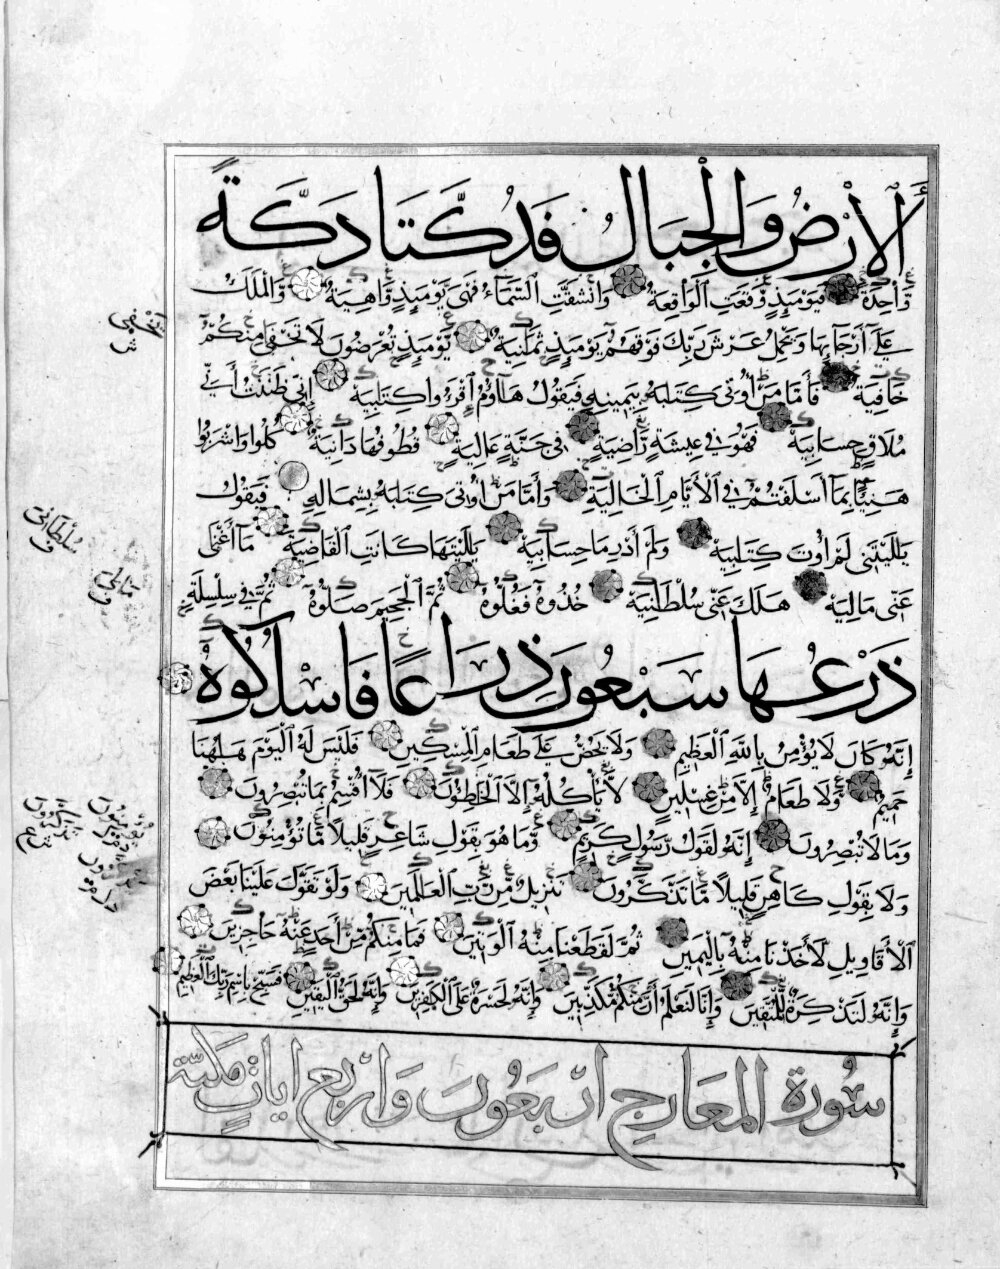 ٱلْأَرْضُ وَالْجِبَالُ فَدُكَّتَا دَكَّةً
وَاحِدَةً فَيَوْمَئِذٍ وَقَعَتِ الْوَاقِعَةُ وَانْشَقَّتِ السَّمَاءُ فَهِيَ يَوْمَئِذٍ وَاهِيَةٌ وَالْمَلَكُ
عَلَىٰ أَرْجَائِهَا وَيَحْمِلُ عَرْشَ رَبِّكَ فَوْقَهُمْ يَوْمَئِذٍ ثَمَٰنِيَةٌ يَوْمَئِذٍ تُعْرَضُونَ لَا تَخْفَىٰ مِنكُمْ
خَافِيَةٌ فَأَمَّا مَنْ أُوتِيَ كِتَٰبَهُ بِيَمِينِهِ فَيَقُولُ هَاؤُمُ اقْرَءُوا كِتَٰبِيَهْ إِنِّي ظَنَنْتُ أَنِّي
مُلَاقٍ حِسَابِيَهْ فَهُوَ فِي عِيشَةٍ رَاضِيَةٍ فِي جَنَّةٍ عَالِيَةٍ قُطُوفُهَا دَانِيَةٌ كُلُوا وَاشْرَبُوا
هَنِيئًا بِمَا أَسْلَفْتُمْ فِي الْأَيَّامِ الْخَالِيَةِ وَأَمَّا مَنْ أُوتِيَ كِتَٰبَهُ بِشِمَالِهِ فَيَقُولُ
يَٰلَيْتَنِي لَمْ أُوتَ كِتَٰبِيَهْ وَلَمْ أَدْرِ مَا حِسَابِيَهْ يَٰلَيْتَهَا كَانَتِ الْقَاضِيَةَ مَا أَغْنَىٰ
عَنِّي مَالِيَهْ هَلَكَ عَنِّي سُلْطَٰنِيَهْ خُذُوهُ فَغُلُّوهُ ثُمَّ الْجَحِيمَ صَلُّوهُ ثُمَّ فِي سِلْسِلَةٍ
ذَرْعُهَا سَبْعُونَ ذِرَاعًا فَاسْلُكُوهُ
إِنَّهُ كَانَ لَا يُؤْمِنُ بِاللَّهِ الْعَظِيمِ وَلَا يَحُضُّ عَلَىٰ طَعَامِ الْمِسْكِينِ فَلَيْسَ لَهُ الْيَوْمَ هَٰهُنَا
حَمِيمٌ وَلَا طَعَامٌ إِلَّا مِنْ غِسْلِينٍ لَا يَأْكُلُهُ إِلَّا الْخَاطِئُونَ فَلَا أُقْسِمُ بِمَا تُبْصِرُونَ
وَمَا لَا تُبْصِرُونَ إِنَّهُ لَقَوْلُ رَسُولٍ كَرِيمٍ وَمَا هُوَ بِقَوْلِ شَاعِرٍ قَلِيلًا مَا تُؤْمِنُونَ
وَلَا بِقَوْلِ كَاهِنٍ قَلِيلًا مَا تَذَكَّرُونَ تَنْزِيلٌ مِنْ رَبِّ الْعَالَمِينَ وَلَوْ تَقَوَّلَ عَلَيْنَا بَعْضَ
الْأَقَاوِيلِ لَأَخَذْنَا مِنْهُ بِالْيَمِينِ ثُمَّ لَقَطَعْنَا مِنْهُ الْوَتِينَ فَمَا مِنْكُمْ مِنْ أَحَدٍ عَنْهُ حَاجِزِينَ
وَإِنَّهُ لَتَذْكِرَةٌ لِلْمُتَّقِينَ وَإِنَّا لَنَعْلَمُ أَنَّ مِنْكُمْ مُكَذِّبِينَ وَإِنَّهُ لَحَسْرَةٌ عَلَى الْكَٰفِرِينَ وَإِنَّهُ لَحَقُّ الْيَقِينِ فَسَبِّحْ بِاسْمِ رَبِّكَ الْعَظِيمِ
سُورَةُ الْمَعَارِجِ ارْبَعُونَ وَارْبَعُ ايَاتٍ مَكِّيَّة